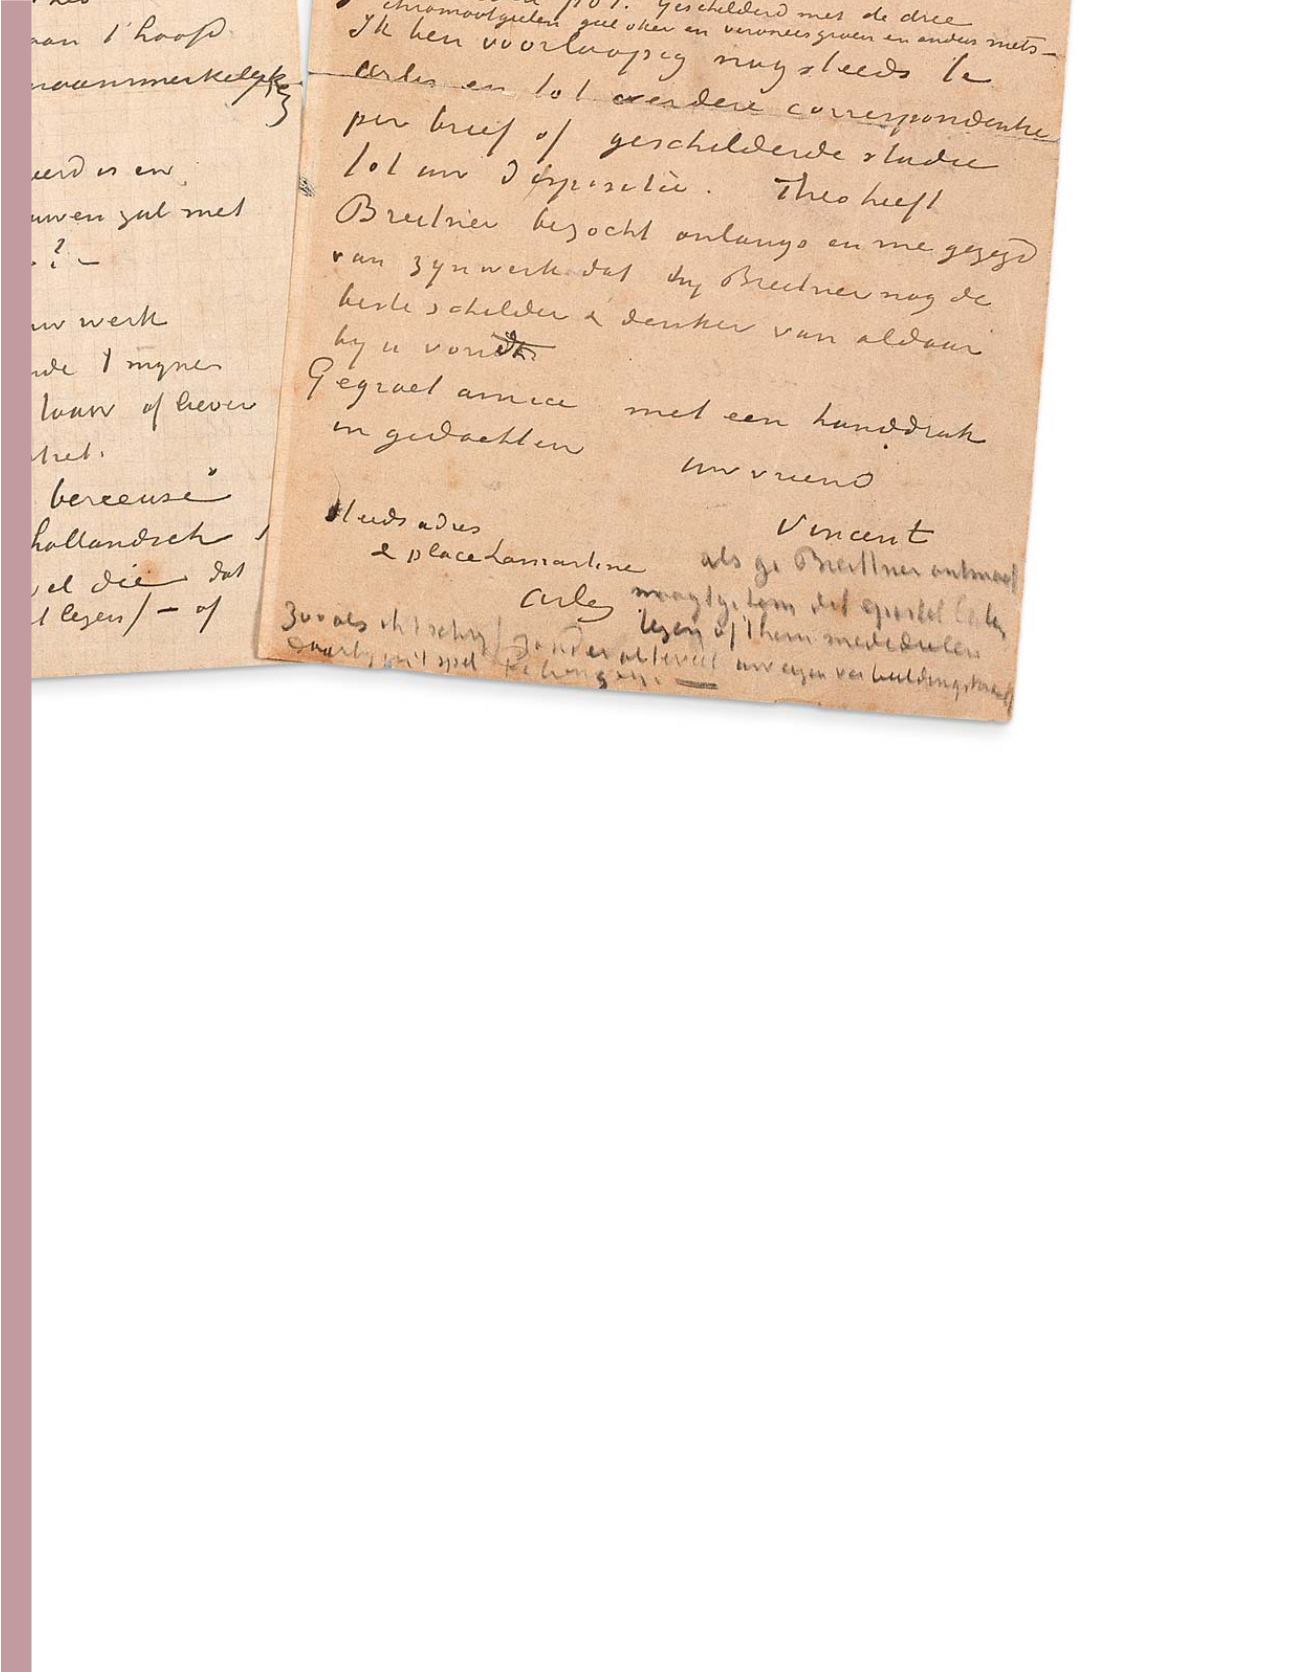 aan 't hoofd
aanmerkelijk
eerd is en
uwen zal met
? —
uw werk
nde 't mijne
of liever
het.
berceuse
hollandsch
wel die dat
t lezen) — of
pot. Geschilderd met de drie
chromaatgeelen geel oker en veroneesgroen en anders niets —
Ik ben voorloopig nog steeds te
Arles en tot verdere correspondentie
per brief of geschilderde studie
tot uw dispositie. Theo heeft
Breitner bezocht onlangs en me gezegd
van zyn werk dat hy Breitner nog de
beste schilder & denker van aldaar
by u vond
Gegroet amice met een handdruk
in gedachten
uw vriend
Vincent
Steeds adres
2 place Lamartine
Arles
als ge Breitner ontmoet
moogt ge hem dit epistel laten
lezen of 't hem mededeelen
zooals ik 't schryf zonder al te veel uw eigen verbeeldingskracht
daarby in 't spel te brengen. —